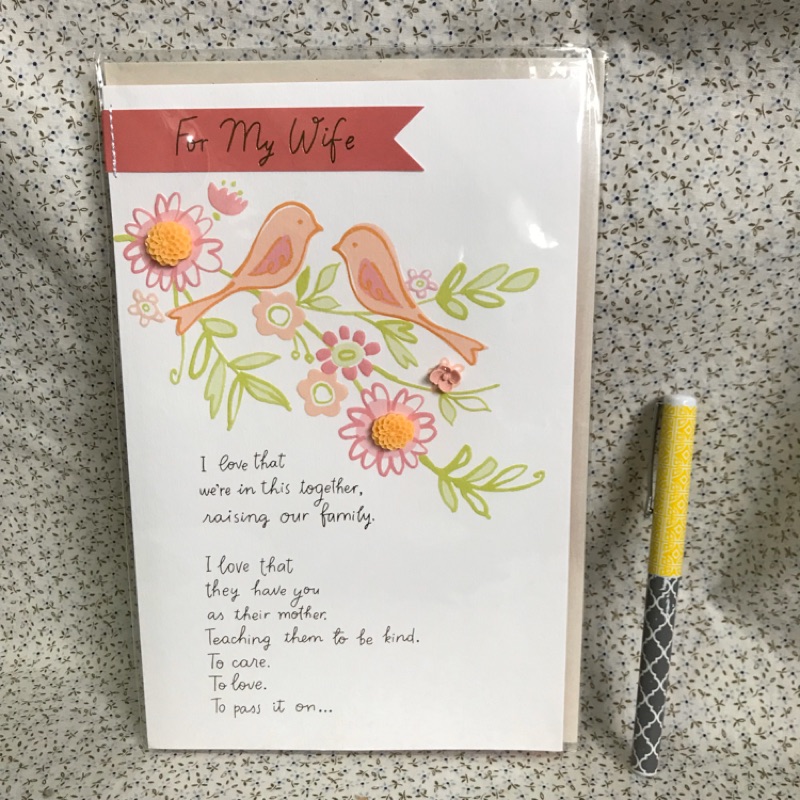 For My Wife
I love that
we're in this together,
raising our family.
I love that
they have you
as their mother.
Teaching them to be kind.
To care.
To love.
To pass it on...